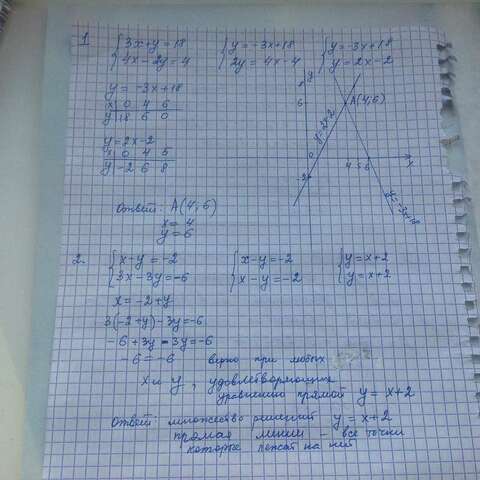 1 { 3x+y=18 { y=-3x+18 { y=-3x+18
4x-2y=4 2y=4x-4 y=2x-2
y=-3x+18
x | 0 4 6
y | 18 6 0
y=2x-2
x | 0 4 5
y | -2 6 8
y
6
A(4;6)
y=2x-2
0
4 5 6
x
-2
y=-3x+18
Ответ: A(4;6)
x=4
y=6
2. { x-y=-2 { x-y=-2 { y=x+2
3x-3y=-6 x-y=-2 y=x+2
x=-2+y
3(-2+y)-3y=-6
-6+3y-3y=-6
-6=-6 верно при любых
x и y, удовлетворяющие
уравнению прямой y=x+2
Ответ: множество решений y=x+2
прямая линия - все точки
которые лежат на ней